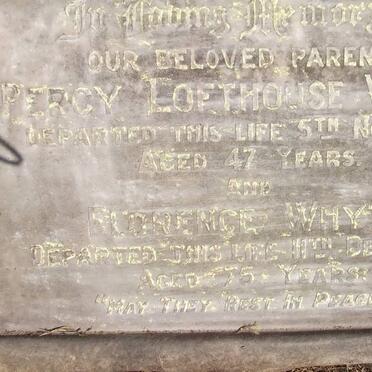 In Loving Memory
OUR BELOVED PAREN
PERCY LOFTHOUSE W
DEPARTED THIS LIFE 5TH NO
AGED 47 YEARS.
AND
FLORENCE WHYT
DEPARTED THIS LIFE 11TH DE
AGED 75 YEARS
"MAY THEY REST IN PEACE